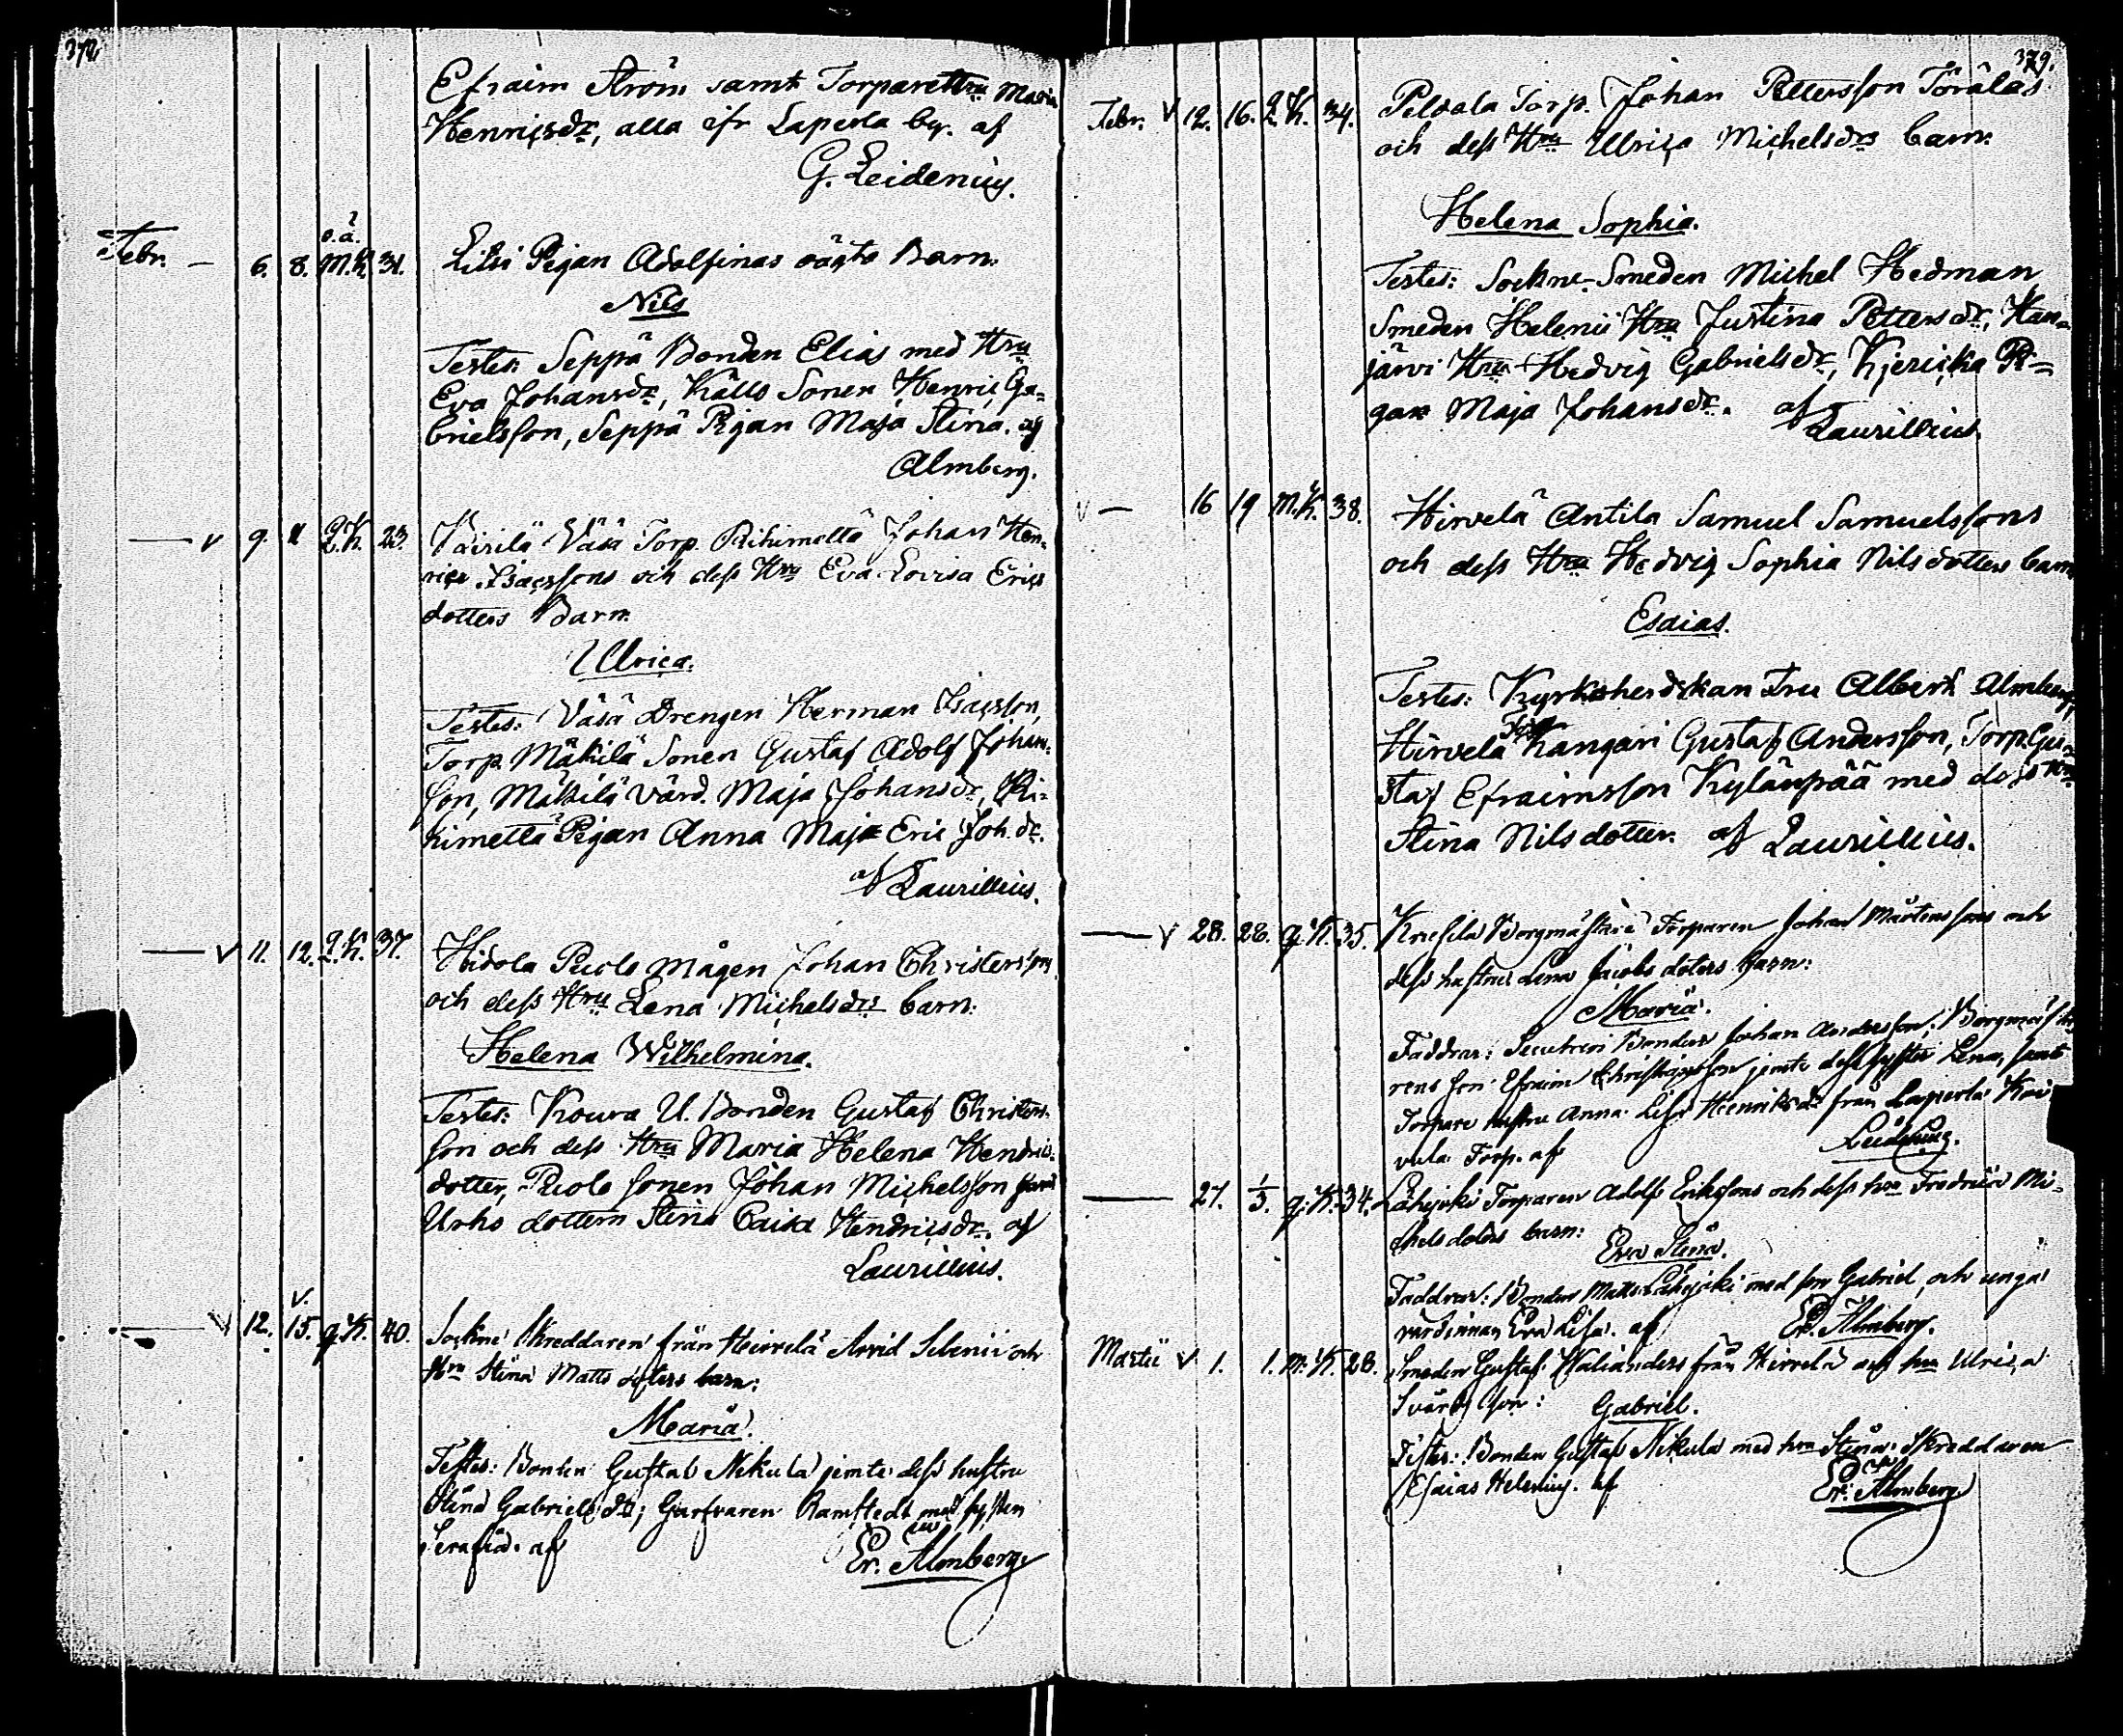 378.
Efraim Ström samt Torparehru Maria
Henricsdr, alla ifr Laperla by. af
G. Leidenius.
Febr. — 6. 8. o.ä. M.K. 31. Lilsi Pigan Adolfinas oägta Barn.
Nils
Testes: Seppä Bonden Elias med Hru
Eva Johansdr, Källs Sonen Henric Ga=
brielsson, Seppä Pigan Maja Stina. af
Almberg.
— v 9. 11 Q.K. 23. Väsä Torp. Rihimettä Johan Hen-
rics Isacssons och dess Hru Eva Lovisa Erics
dotters Barn.
Ulrica.
Testes: Väsä Drengen Herman Isacsson,
Torp. Mäkilä Sonen Gustaf Adolf Johans-
son, Mäkilä värd. Maja Johansdr, Ri-
himettä Pigan Anna Maja Eric Joh. dr.
af Laurillius.
— v 11. 12. Q.K. 37. Hidola Puolo mågen Johan Christerssons
och dess Hru Lena Michelsdrs barn:
Helena Wilhelmina.
Testes: Kouva U. Bonden Gustaf Christers-
son och dess Hru Maria Helena Hendrics-
dotter, Puolo sonen Johan Michelsson samt
Urhs dottern Stina Caisa Hendricsdr. af
Laurillius.
— v 12. 15. q.K. 40. Sockne Skreddaren från Heirvelä Arvid Selenii och
Hru Stina Matts dotters barn:
Maria.
Testes: Bonden Gustaf Nikula jemte dess hustru
Stina Gabriels dr; Garfvaren Ramstedt med syster
Serafia. af
Er. Almberg
379.
Febr. v 12. 16. Q.K. 34. Peldola Torp. Johan Pettersson Töräläs
och dess Hru Ulrica Michelsdrs barn.
Helena Sophia.
Testes: Sockne-Smeden Michel Hedman
Smeden Helenii Hru Justina Pettersdr, Han-
järvi Hru Hedvig Gabrielsdr, Kjericka Pi=
gan Maja Johansdr. af
Laurillius.
v — 16 19 M.K. 38. Hirvelä Antila Samuel Samuelssons
och dess Hru Hedvig Sophia Nilsdotters barn
Esaias.
Testes: Kyrkoherdskan Fru Albert. Almberg,
Hirvelä Kangari Gustaf Andersson, Torp. Gu=
staf Efraimsson Kyläupää med dess Hru
Stina Nilsdotter. af Laurillius.
— v 28. 28. q.K. 35. Borgmästare Torparen Johan Mårtenssons och
dess hustru Lena Jacobs doters barn:
Maria.
Faddrar: Bonden Johan Andersson, Borgmästa-
rens son Efraim jemte dess syster Lena, samt
Torpare hustru Anna Lisa Henriksdr från Laperla Koi
vula Torp. af
— 27. 1/3. q.K. 34. Lähejoki Torparen Adolf Erikssons och dess hru Fredrica Mi-
chels doters barn:
Eva Stina.
Faddrar: Bonden Matts Lähejoki med son Gabriel, och unga
värdinnan Eva Lisa. af
Er. Almberg.
Martii v 1. 1. M.K. 28. Smeden Gustaf Walianders från Hirvelä och hru Ulrica
Svärds son:
Gabriel.
Testes: Bonden Gustaf Nikula med hru Stina. Skreddaren
Esaias Helenius. af
Er. Almberg